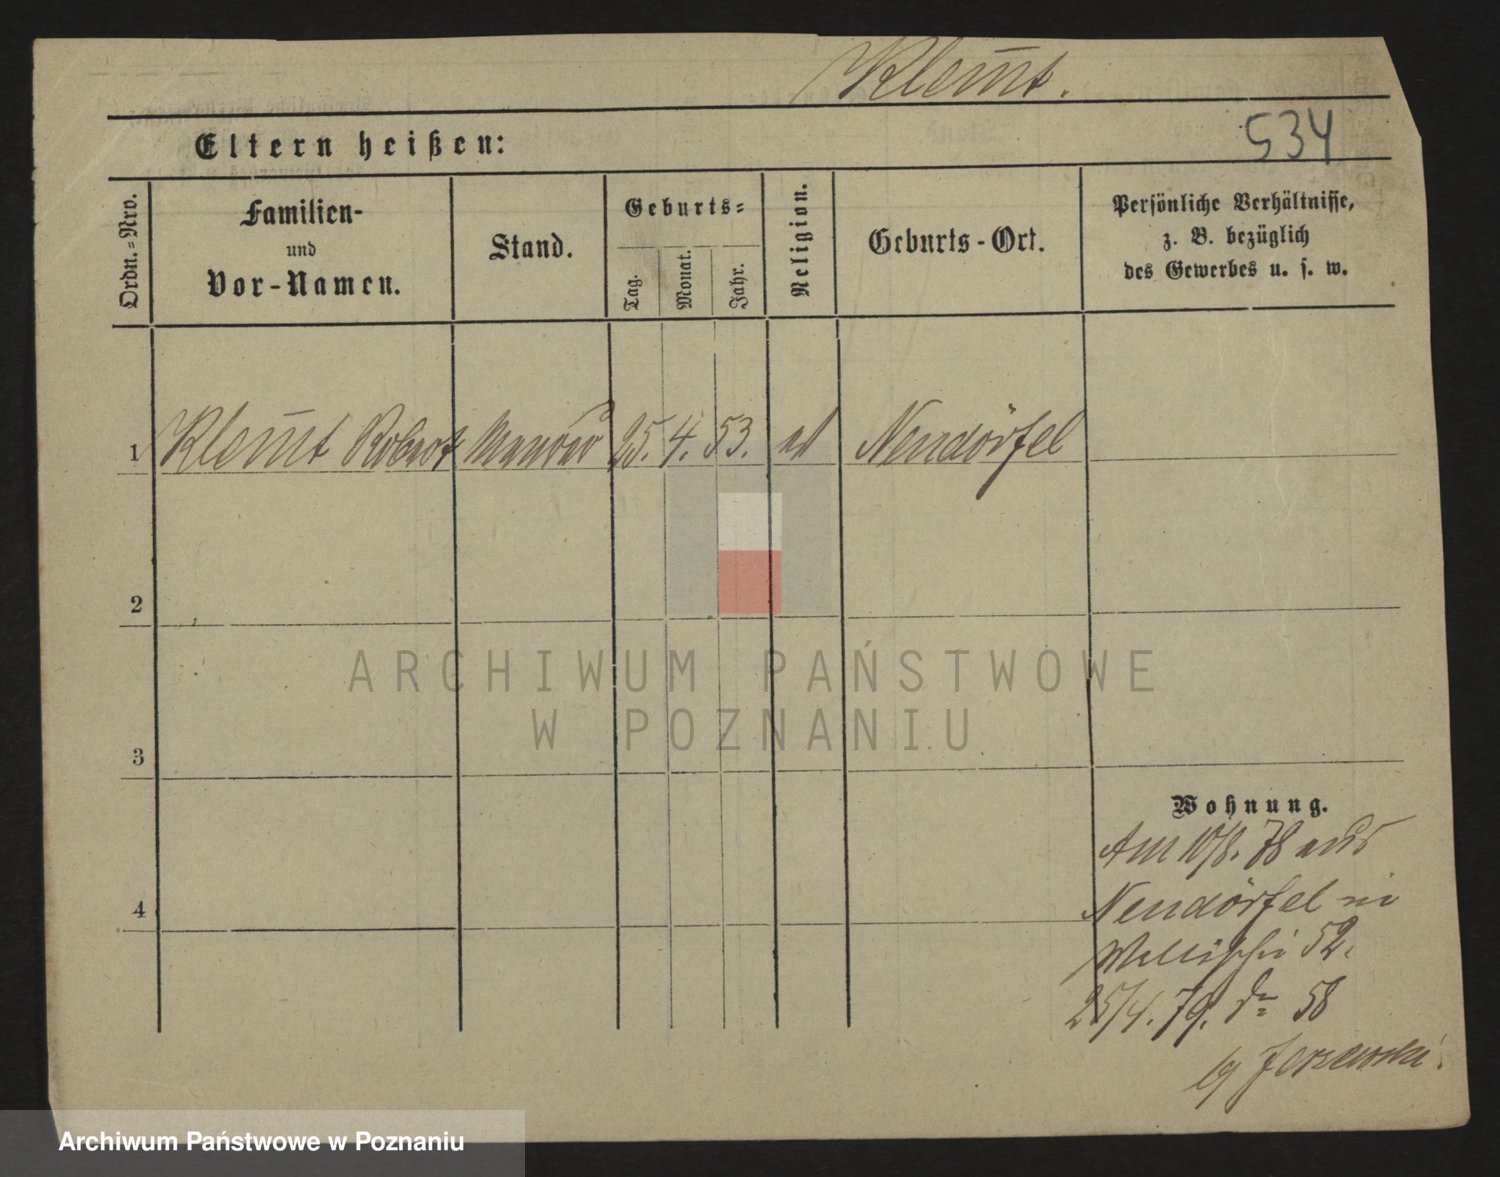 Klemt.
534
Eltern heißen:
Ordn.=Nro.
Familien-
und
Vor-Namen.
Stand.
Geburts=
Tag.
Monat.
Jahr.
Religion.
Geburts-Ort.
Persönliche Verhältnisse,
z. B. bezüglich
des Gewerbes u. s. w.
1 Klemt Robert Maurer 25. 4. 53. Neudörfel
2
3
4
Wohnung.
Am 10/8. 78 aus
Neudörfel in
52.
25/4. 79. do 58
ARCHIWUM PAŃSTWOWE
W POZNANIU
Archiwum Państwowe w Poznaniu